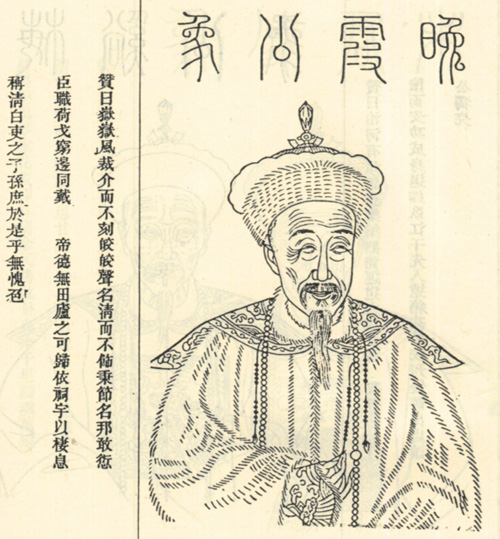 晚霞公象
贊曰嶽嶽風裁介而不刻皎皎聲名清而不飾秉節名邦敢愆
臣職荷戈窮邊同戴　帝德無田廬之可歸依祠宇以棲息
稱清白吏之子孫庶於是乎無愧召